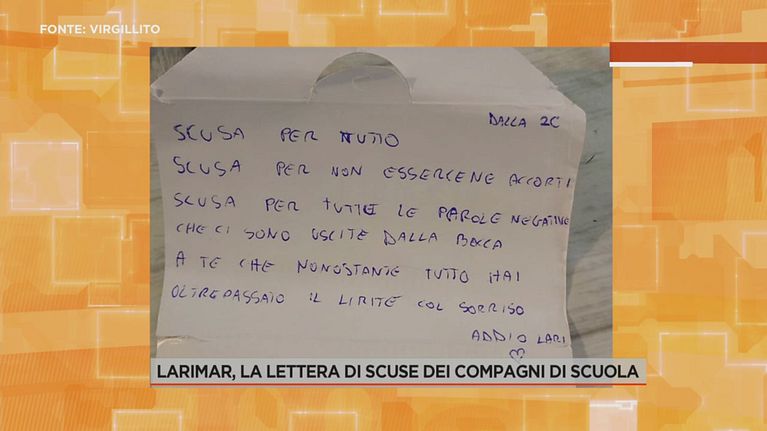 FONTE: VIRGILLITO
DALLA 2C
SCUSA PER TUTTO
SCUSA PER NON ESSERCENE ACCORTI
SCUSA PER TUTTE LE PAROLE NEGATIVE
CHE CI SONO USCITE DALLA BOCCA
A TE CHE NONOSTANTE TUTTO HAI
OLTREPASSATO IL LIRITE COL SORRISO
ADDIO LARI
LARIMAR, LA LETTERA DI SCUSE DEI COMPAGNI DI SCUOLA